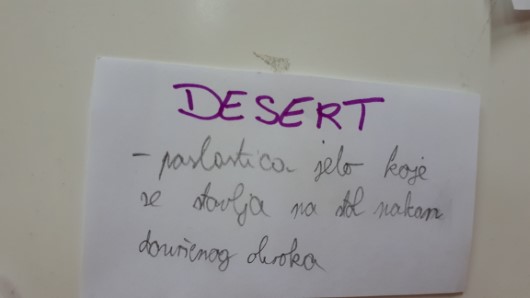 DESERT
- paslastica jelo koje
se stavlja na stol nakon
dovršenog obroka